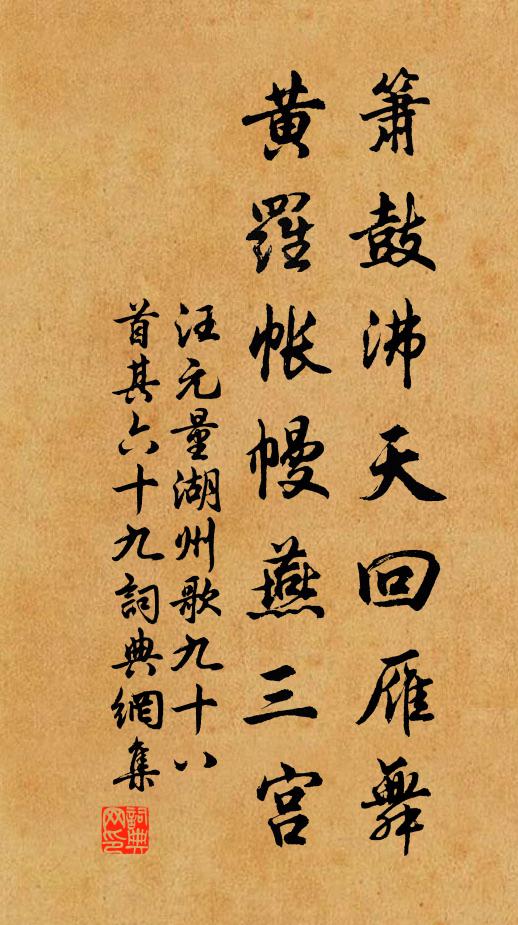 簫鼓沸天回雁舞
黃羅帐幔燕三宮
汪元量湖州歌九十八
首其六十九詞典網集
詞典
网印